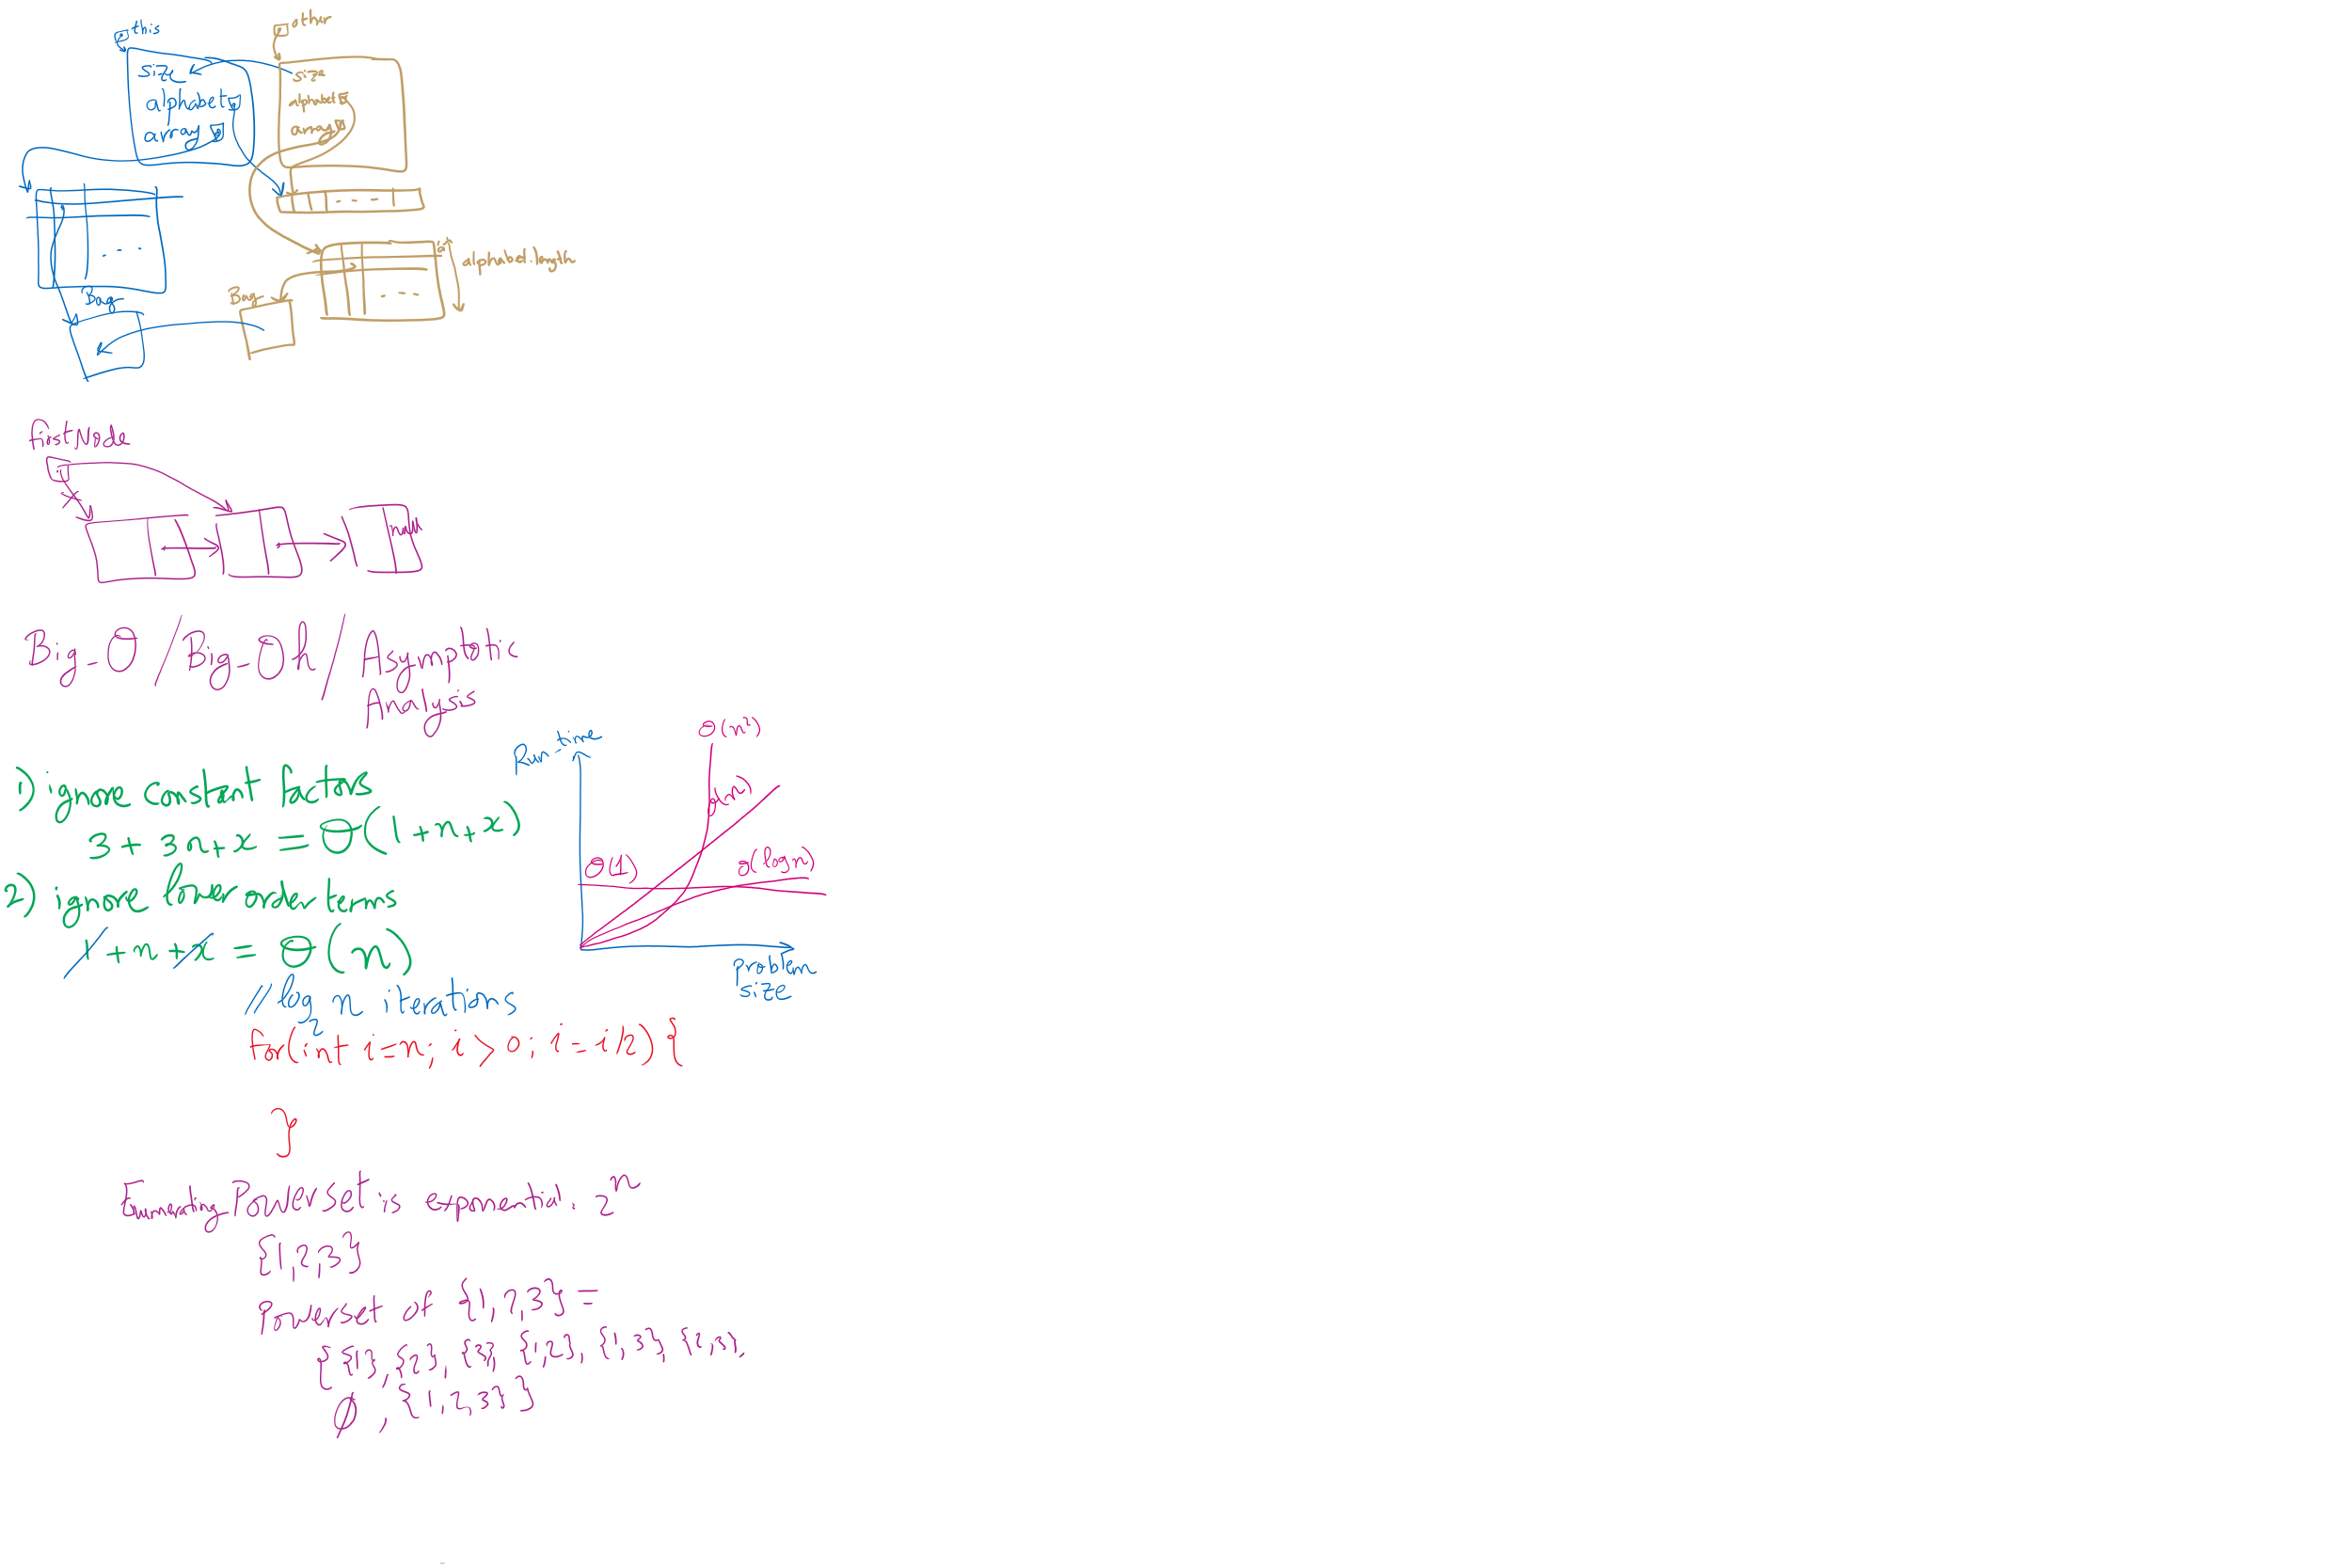 this
other
size
alphabet
array
size
alphabet
array
'a'
alphabet.length
Bag
Bag
firstNode
null
Big-O / Big-Oh / Asymptotic
Analysis
1) ignore constant factors
3 + 3n + x = O(1+n+x)
2) ignore lower order terms
1 + n + x = O(n)
Run-time
O(n²)
O(n)
O(1)
O(log n)
Problem
size
// log₂ n iterations
for(int i=n; i > 0; i=i/2) {
}
Enumerating Powerset is exponential: 2ⁿ
{1,2,3}
Powerset of {1,2,3} =
{ {1}, {2}, {3}, {1,2}, {1,3}, {2,3},
∅, {1,2,3} }